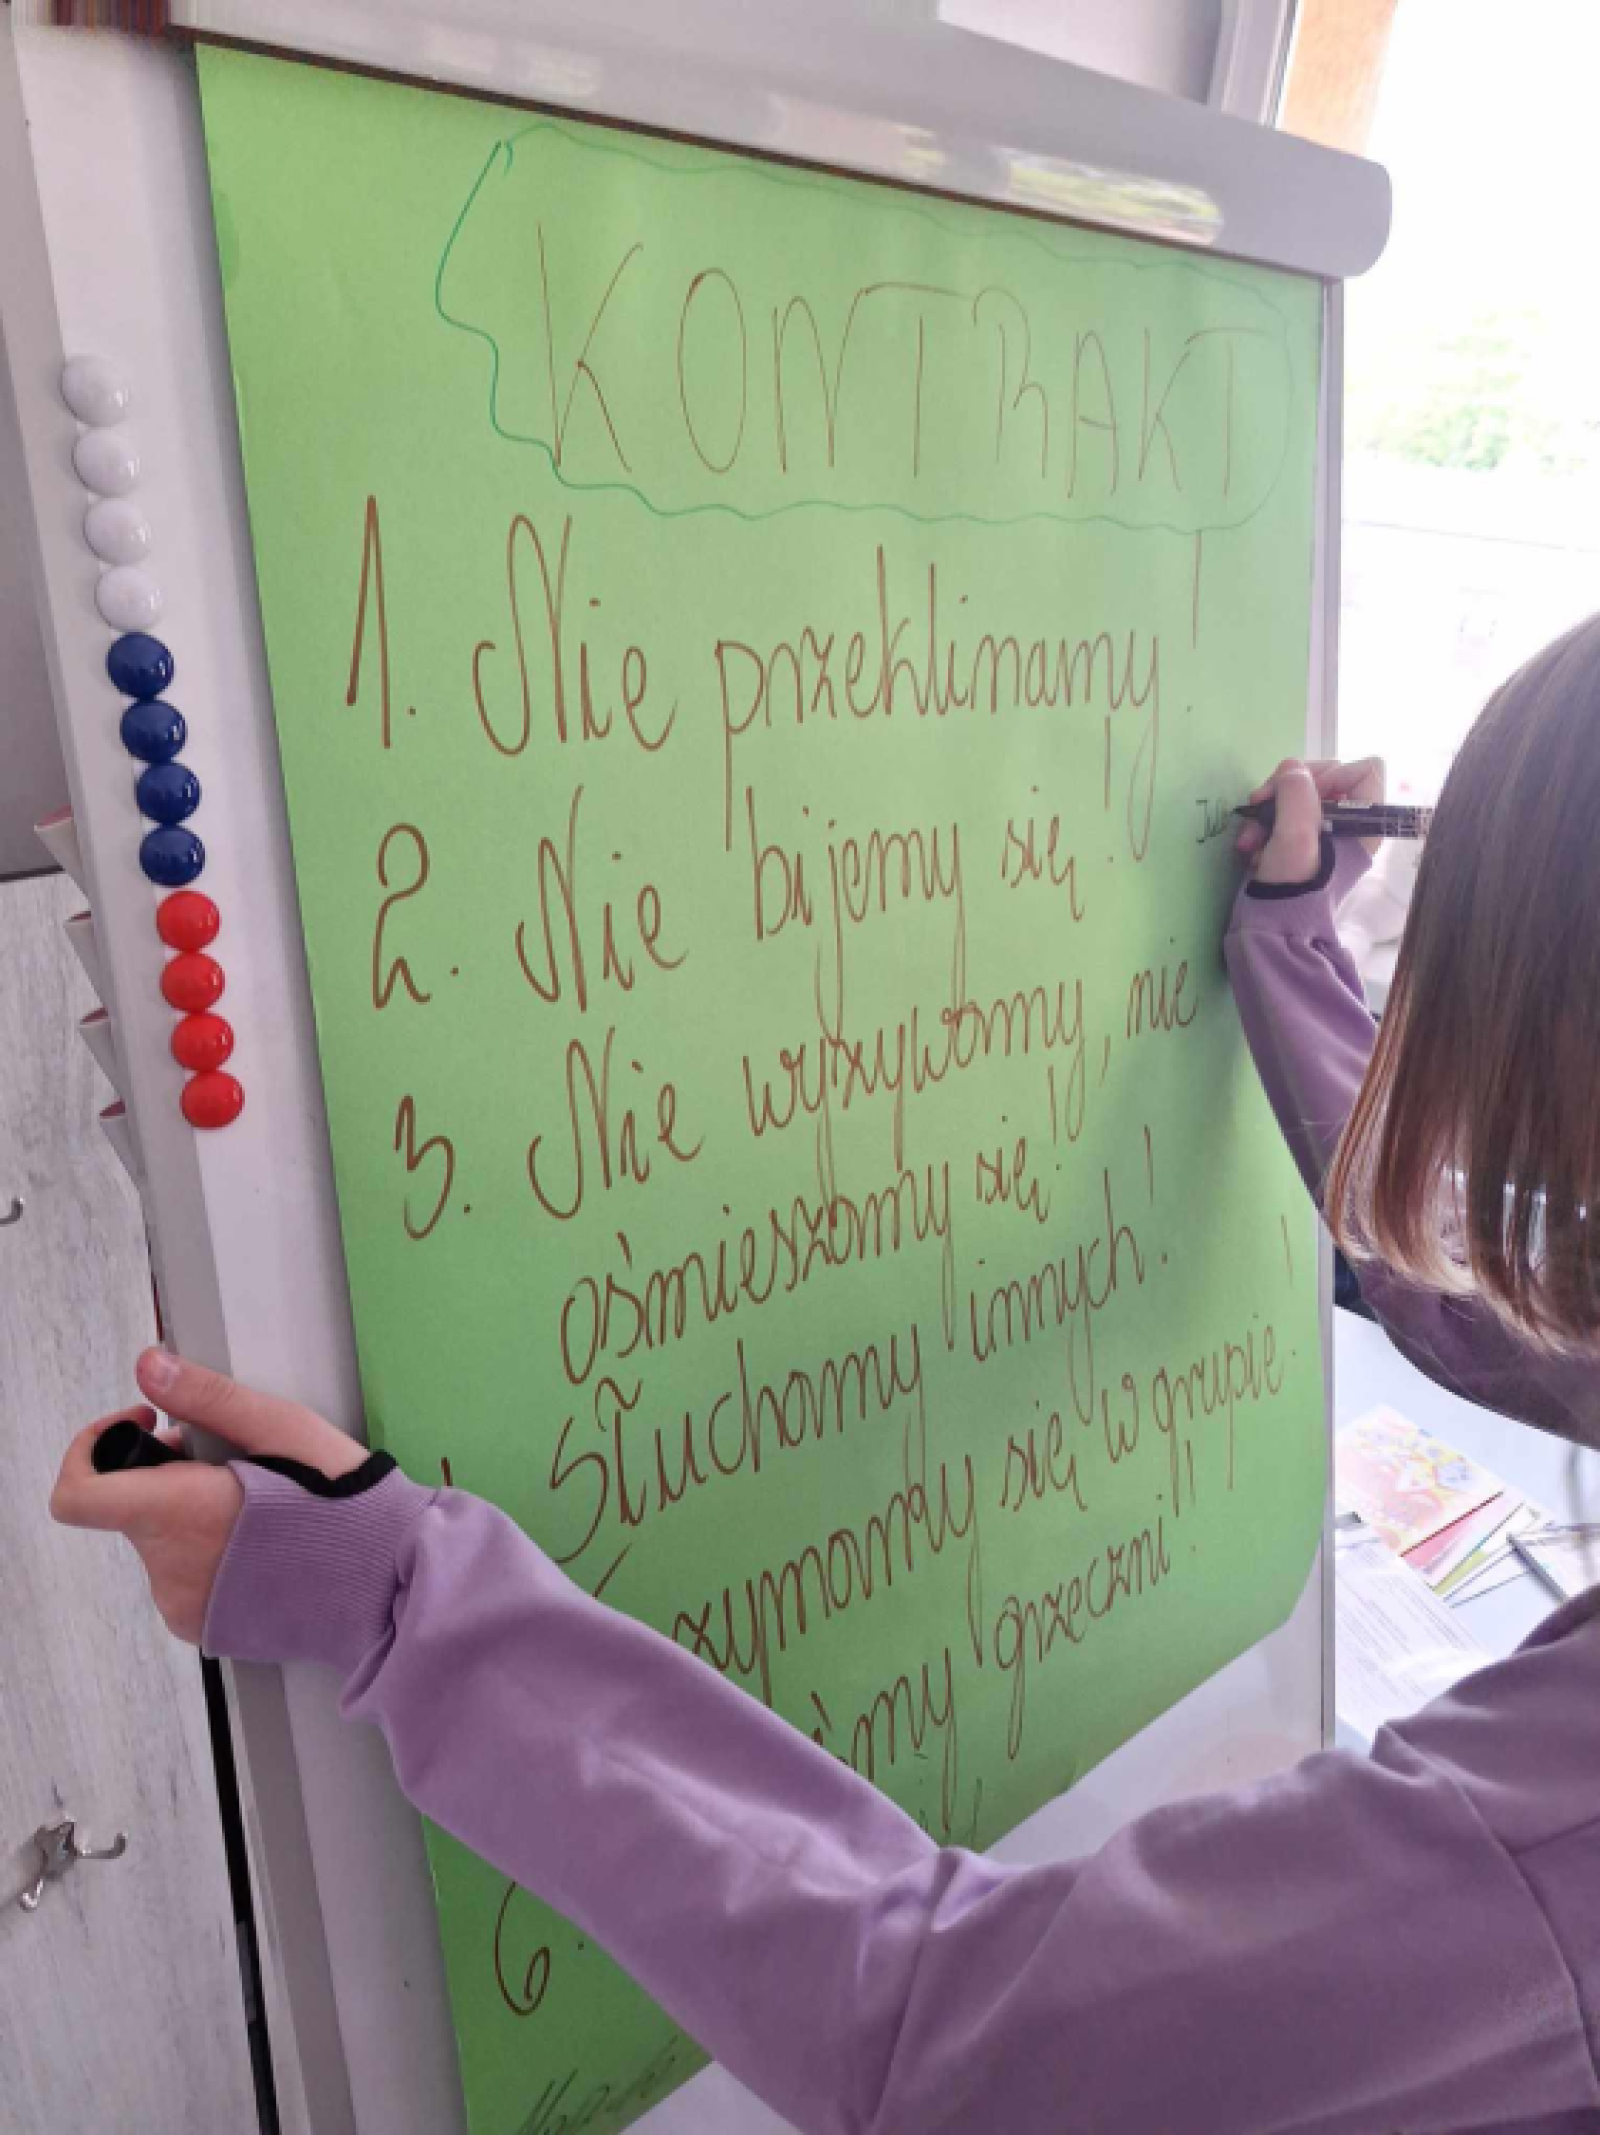 KONTRAKT
1. Nie przeklinamy!
2. Nie bijemy się!
3. Nie wyzywamy, nie
ośmieszamy się!
Słuchamy innych!
się w grupie!
grzeczni!!
6.